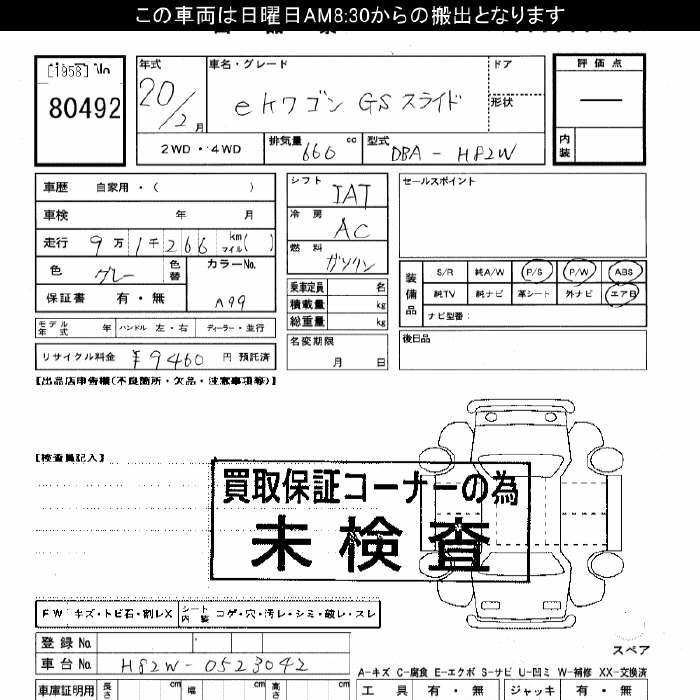 この車両は日曜日AM8:30からの搬出となります
[1958] No
80492
年式 20/2月
車名・グレード ekワゴン GS スライド
ドア
形状
2WD ・ 4WD
排気量 660 cc
型式 DBA - H82W
評価点
内装
車歴 自家用・( )
車検 年 月
走行 9万 1千 266 km マイル( )
色 グレー 色替
カラーNo. A99
保証書 有・無
モデル年式 年 ハンドル 左・右 ディーラー・並行
リサイクル料金 ¥9460 円 預託済
シフト IAT
冷房 AC
燃料 ガソリン
乗車定員 名
積載量 kg
総重量 kg
名変期限
月 日
セールスポイント
装備品
S/R 純A/W P/S P/W ABS
純TV 純ナビ 革シート 外ナビ エアB
ナビ型番:
後日品
【出品店申告欄(不良箇所・欠品・注意事項等)】
【検査員記入】
買取保証コーナーの為
未検査
FW キズ・トビ石・割レX
シート内装 コゲ・穴・汚レ・シミ・破レ・スレ
登録 No.
車台 No. H82W-0523042
スペア
A-キズ C-腐食 E-エクボ S-サビ U-凹ミ W-補修 XX-交換済
車庫証明用 長さ cm 幅 cm 高さ cm
工具 有・無 ジャッキ 有・無